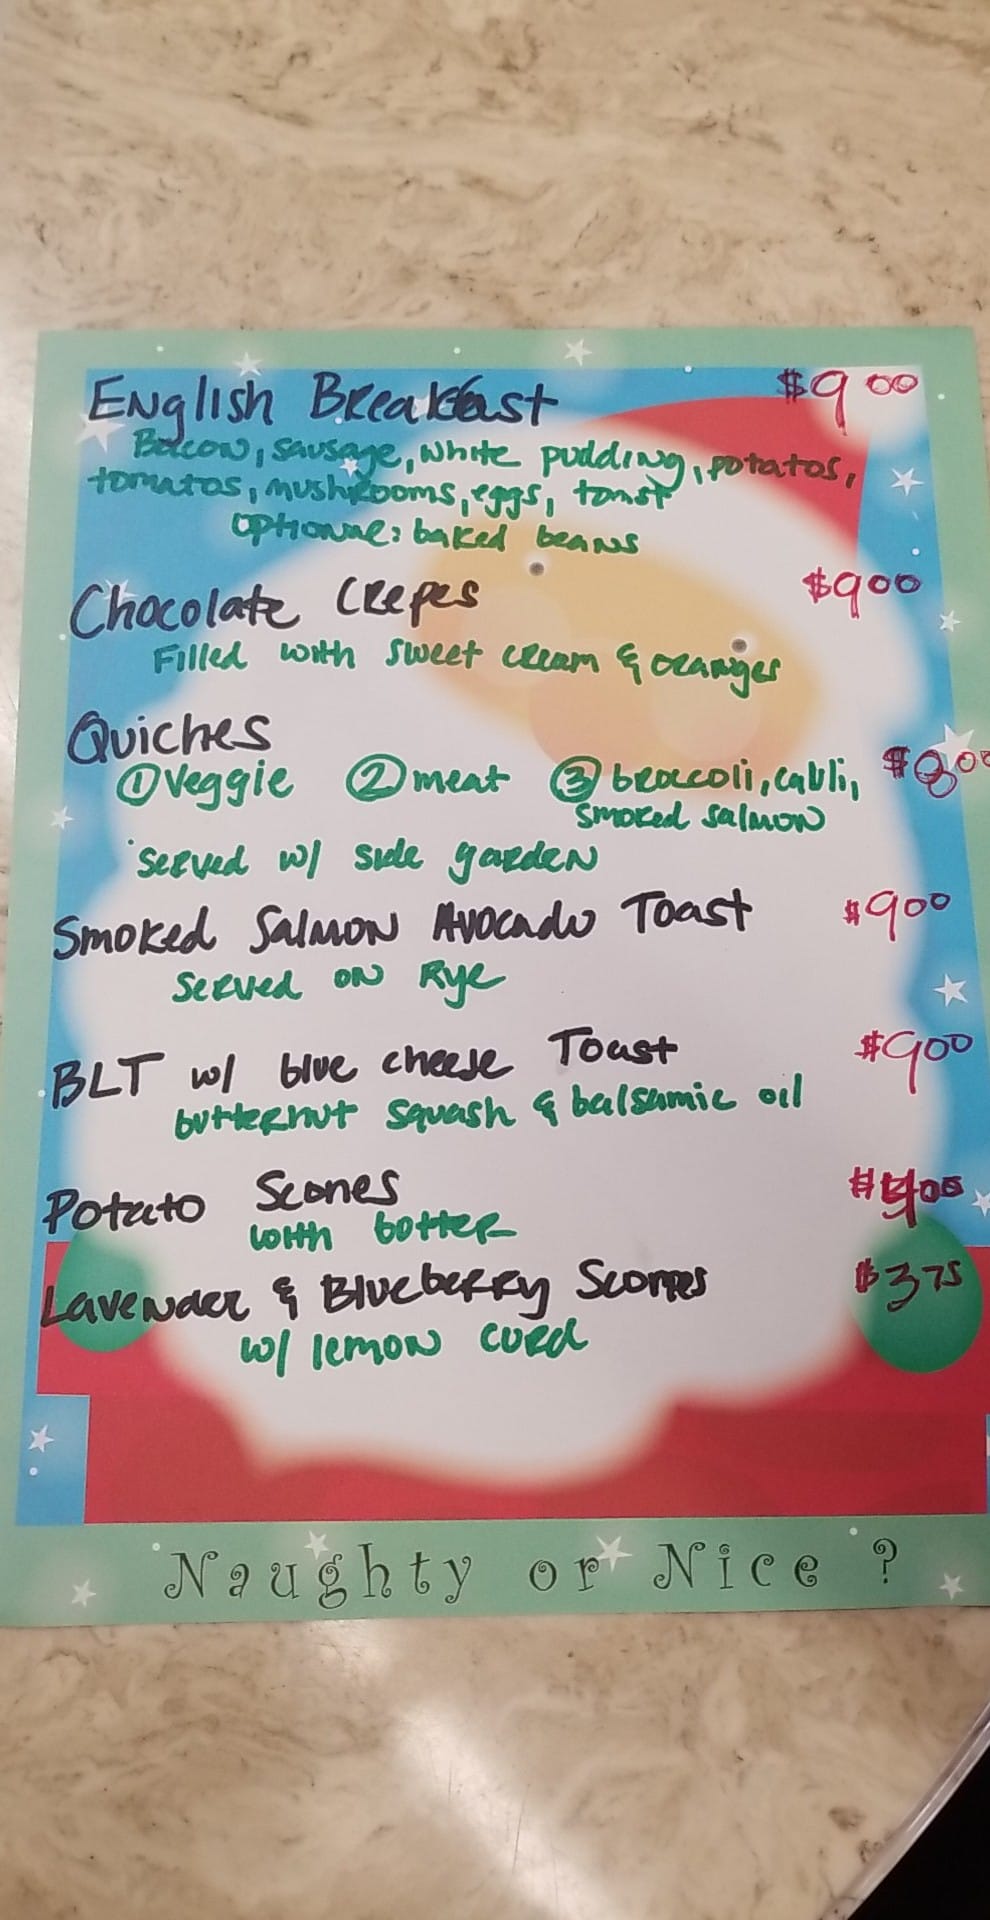 English Breakfast $9 00
Bacon, sausage, white pudding, potatos,
tomatos, mushrooms, eggs, toast
optional: baked beans
Chocolate Crepes $9 00
Filled with sweet cream & oranges
Quiches
① Veggie ② meat ③ broccoli, cauli, $8 00
smoked salmon
served w/ side garden
Smoked Salmon Avocado Toast $9 00
served on Rye
BLT w/ blue cheese Toast $9 00
butternut squash & balsamic oil
Potato Scones
with botter
Lavender & Blueberry Scones $3 75
w/ lemon curd
Naughty or Nice ?